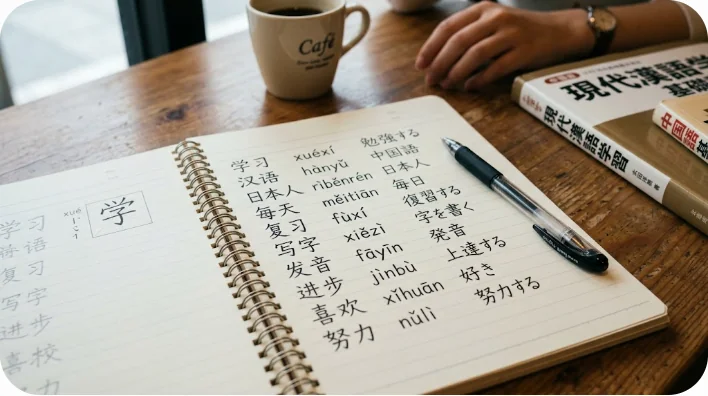 Café
現代漢語学
現代漢語学習
中国語
学习 xuéxí 勉強する
汉语 hànyǔ 中国語
日本人 rìběnrén 日本人
每天 měitiān 毎日
复习 fùxí 復習する
写字 xiězì 字を書く
发音 fāyīn 発音
进步 jìnbù 上達する
喜欢 xǐhuān 好き
努力 nǔlì 努力する
xué
学
学习
语
复习
写字
进步
喜校
力